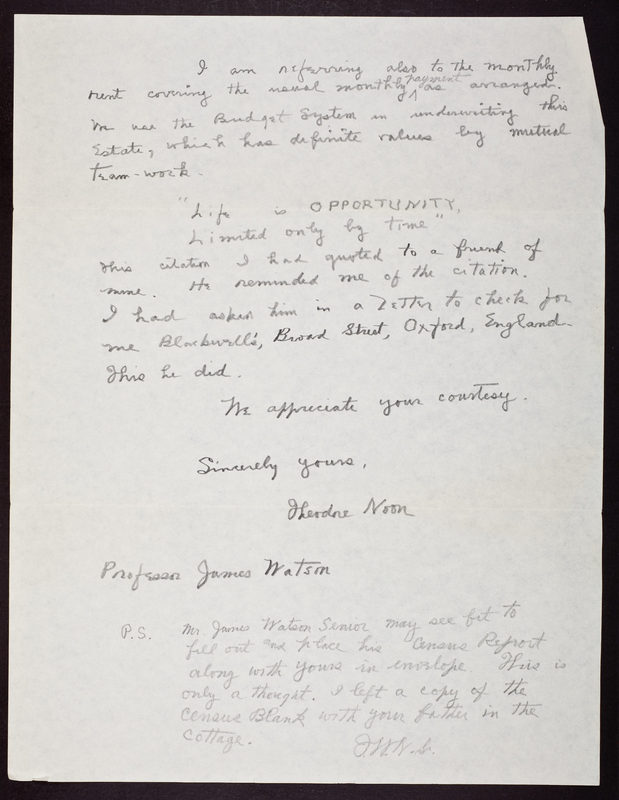 I am referring also to the monthly
rent covering the usual monthly payment as arranged.
We use the Budget System in underwriting this
Estate, which has definite values by mutual
team-work.
"Life is OPPORTUNITY,
Limited only by time"
This citation I had quoted to a friend of
mine. He reminded me of the citation.
I had asked him in a letter to check for
me Blackwell's, Broad Street, Oxford, England.
This he did.
We appreciate your courtesy.
Sincerely yours,
Theodore Noon
Professor James Watson
P.S. Mr. James Watson Senior may see fit to
fill out and place his Census Report
along with yours in envelope This is
only a thought. I left a copy of the
Census Blank with your father in the
cottage.